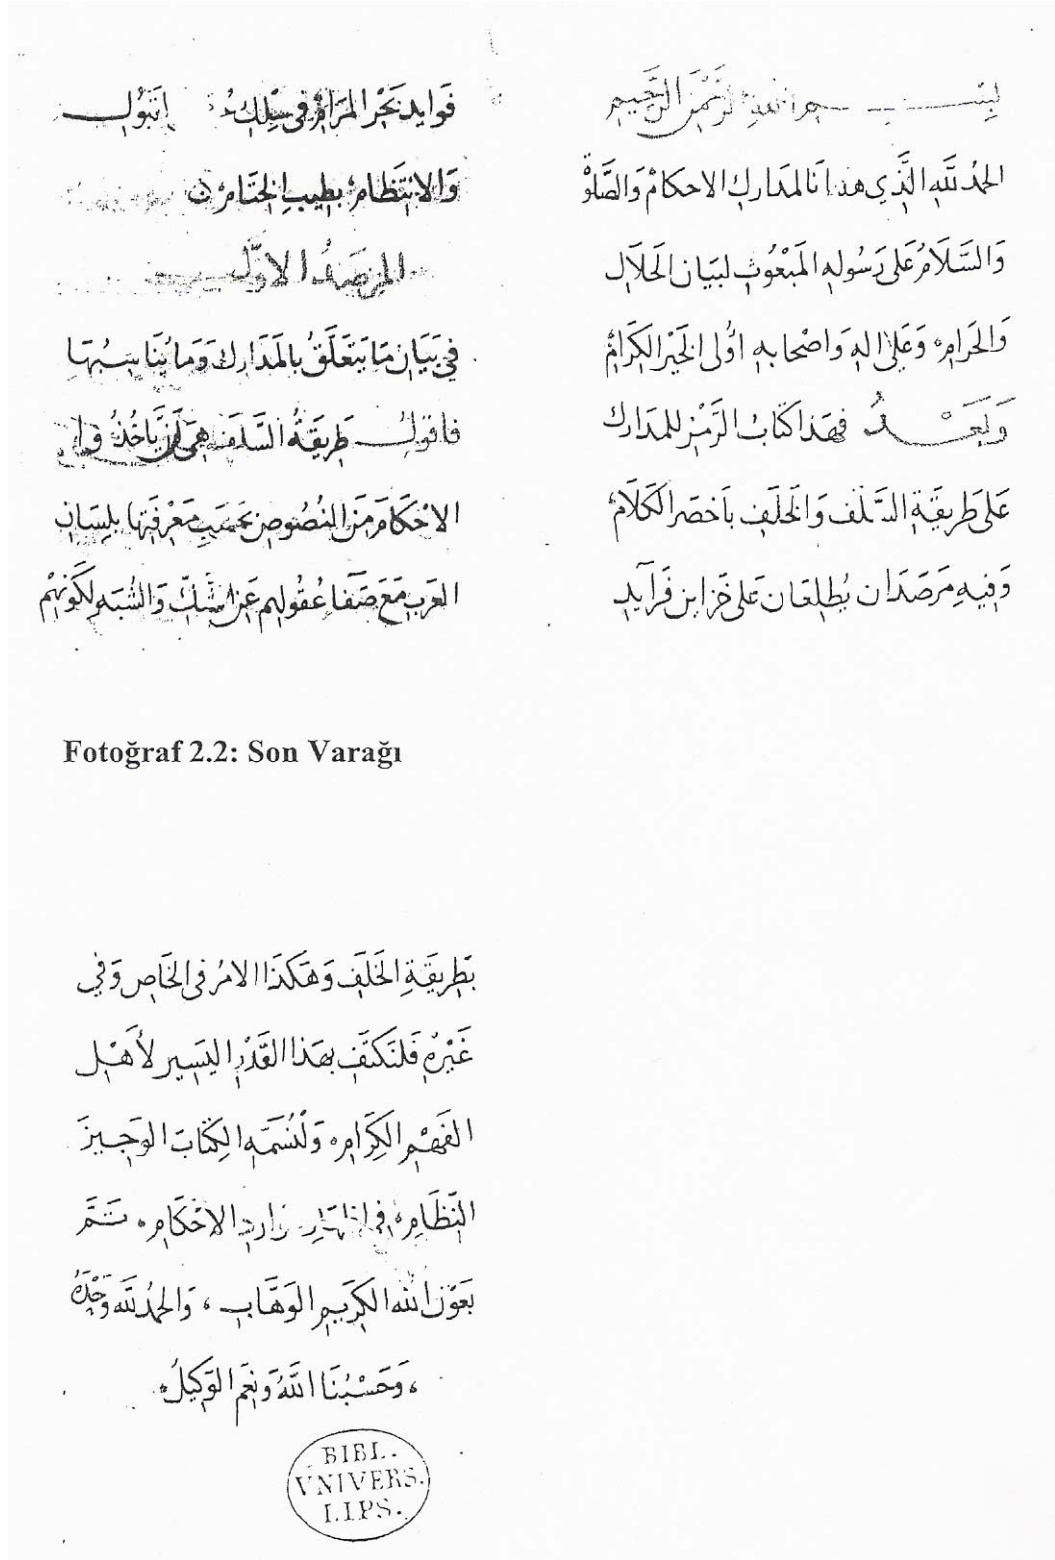 بسم الله الرحمن الرحيم
الحمد لله الذي هدانا لمدارك الاحكام والصلوة
والسلام على رسوله المبعوث لبيان الحلال
والحرام وعلى اله واصحابه اولى الخير الكرام
وبعد فهذا كتاب الرمز للمدارك
على طريقة السلف والخلف باخصر الكلام
وفيه مرصدان يطلعان على خزاين فرايد
فوايد بحر المرام في سلك
والانتظام بطيب الختام
المرصد الاول
في بيان ما يتعلق بالمدارك وما يناسبها
فاقول طريقة السلف هي
الاحكام من النصوص بحسب معرفتها بلسان
العرب مع صفا عقولهم عن الشك والشبه لكونهم
Fotoğraf 2.2: Son Varağı
بطريقة الخلف وهكذا الامر في الخاص وفي
غيره فلنكتف بهذا القدر اليسير لأهل
الفهم الكرام ولنسمه الكتاب الوجيز
النظام في اظهار الاحكام تم
بعون الله الكريم الوهاب والحمد لله وحده
وحسبنا الله ونعم الوكيل
BIBL.
VNIVERS.
LIPS.